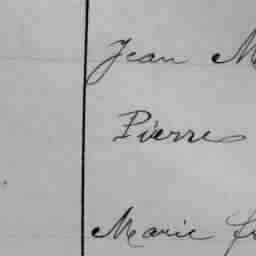 Jean M
Pierre
Marie fr